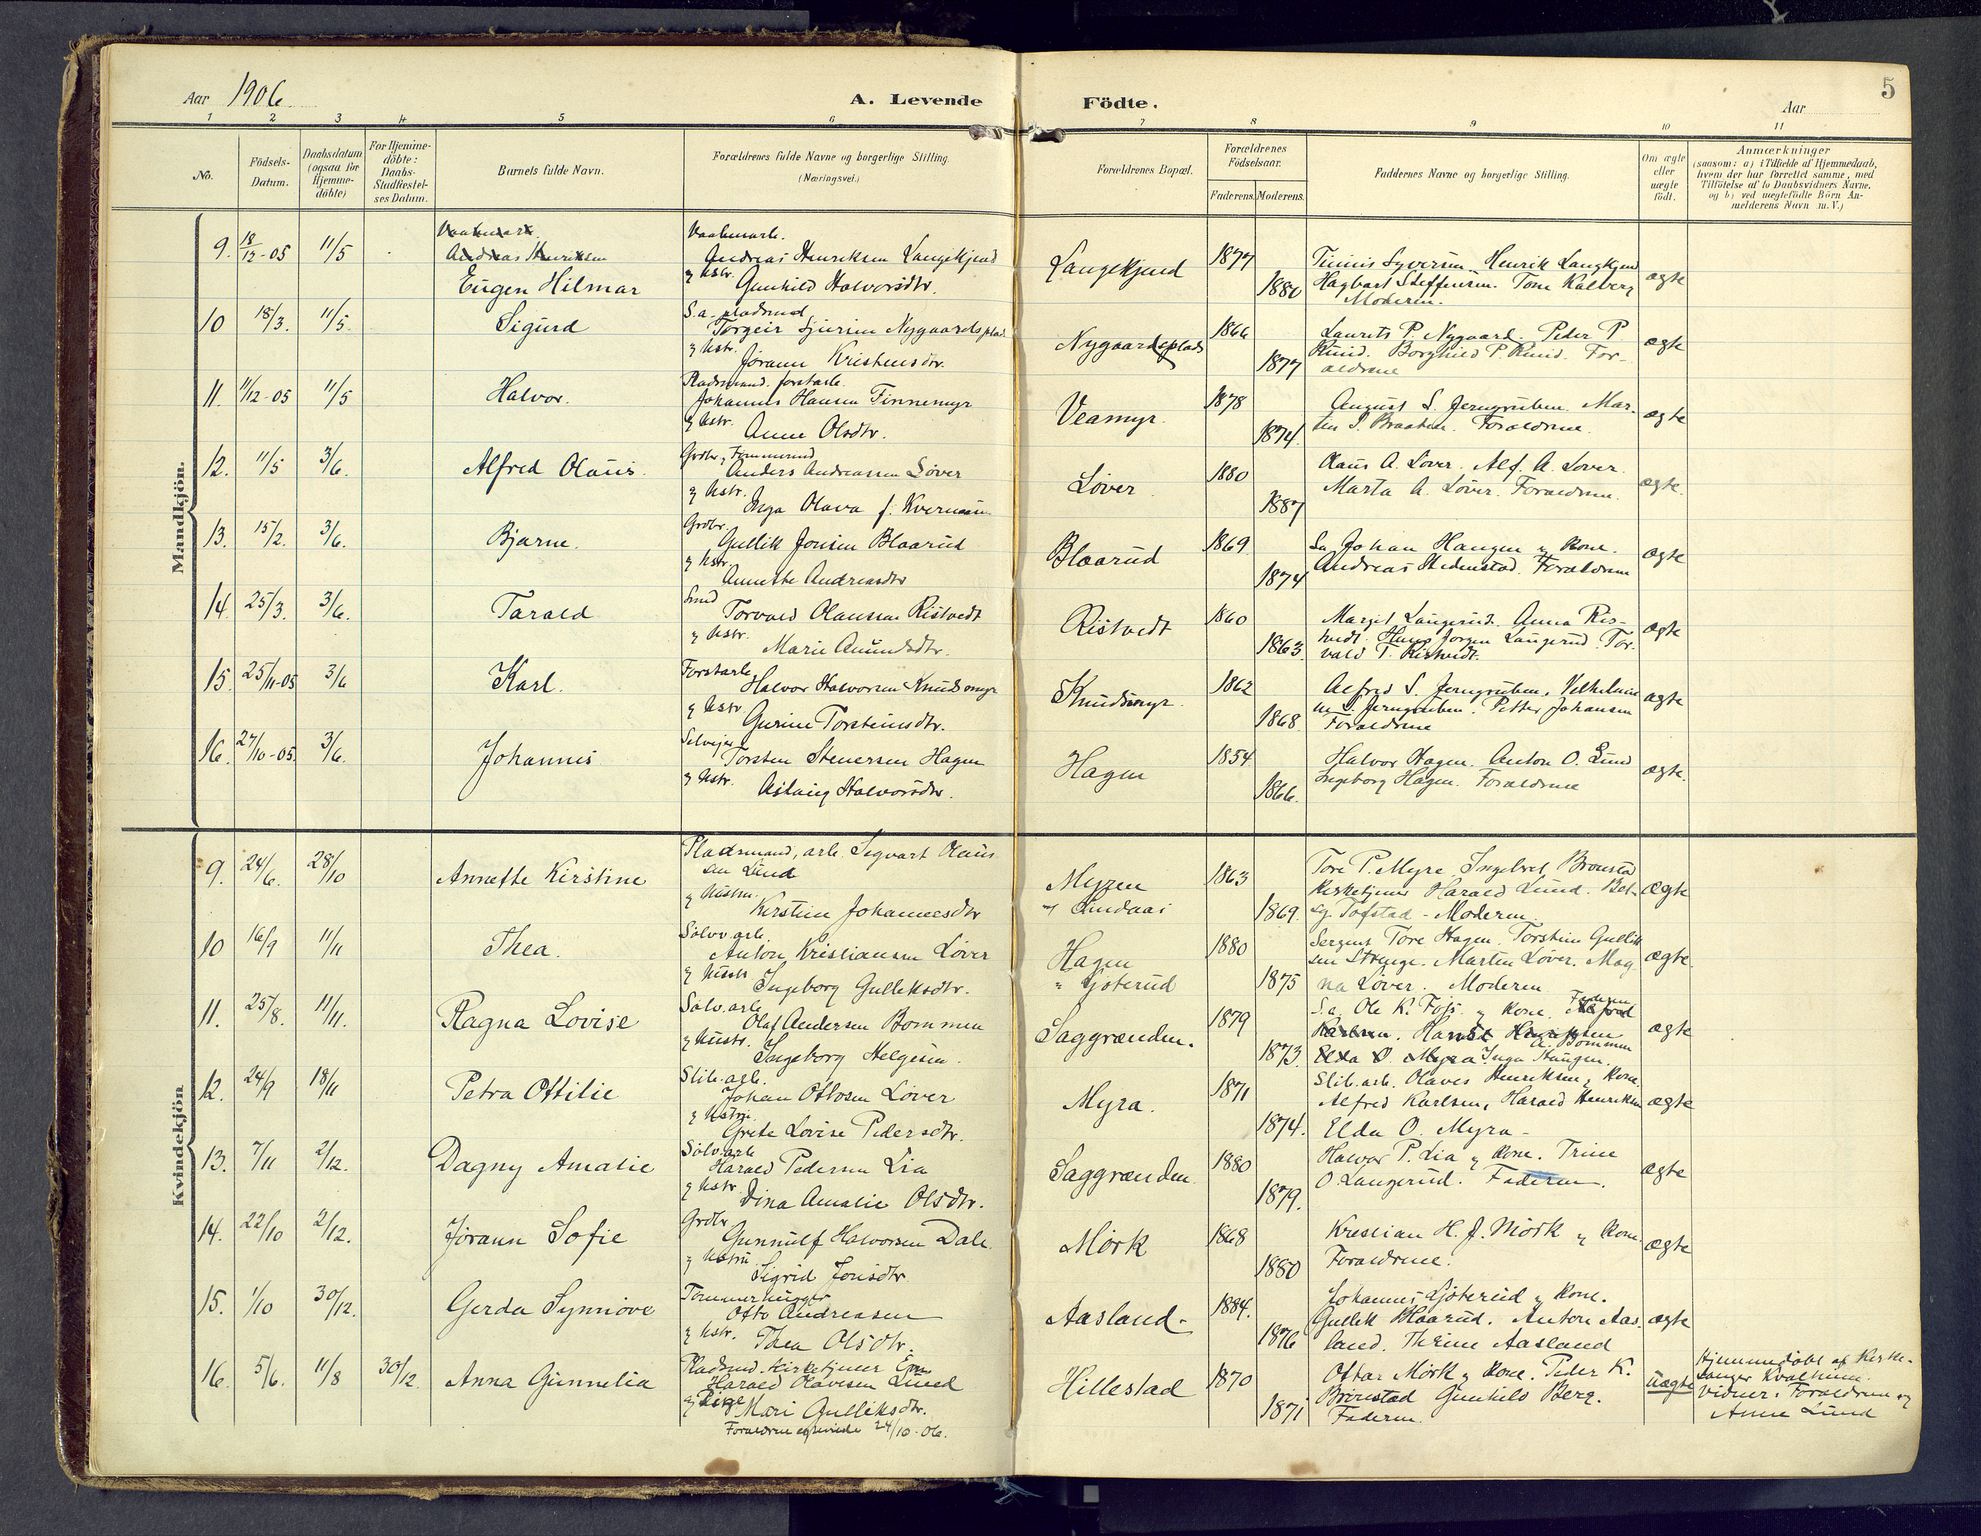 Aar 1906. A. Levende Födte. Aar 5
1 2 3 4 5 6 7 8 9 10 11
No. Födsels-Datum. Daabsdatum (ogsaa for Hjemme-döbte) For Hjemme-döbte: Daabs-Stadfæstel-ses Datum. Barnets fulde Navn. Forældrenes fulde Navne og borgerlige Stilling. (Næringsvei.) Forældrenes Bopæl. Forældrenes Födselsaar. Faderens. Moderens. Faddernes Navne og borgerlige Stilling. Om ægte eller uægte födt. Anmærkninger (saasom: a) i Tilfælde af Hjemmedaab, hvem der har forrettet samme, med Tilföielse af to Daabsvidners Navne, og b) ved uægtefödte Börn An-melderens Navn m. V.)
Mandkjön.
9. 18/12-05 11/5
Andreas Henriksen
Eugen Hilmar
Vaabenarb.
Andreas Henriksen Langekjend
& Hstr. Gunhild Halvorsdtr.
Langekjend 1877 1880
Henrik Langkjend
Hagbart Steffensen. Tone Kalberg
Moderen.
ægte
10 18/3. 11/5. Sigurd
S.a. pladsmd.
Torgeir Nygaardsplad.
& Hstr. Jörann Kristensdtr.
Nygaardsplads 1866 1877
Laurits P. Nygaard. Peder P
Ruud. Borghild P. Ruud. For-
ældrene
ægte
11. 11/12-05 11/5 Halvor.
Pladsmand. forstarb.
Johannes Hansen Finnemyr
& Hstr. Anne Olsdtr.
Veamyr. 1878 1874.
August S. Jerngruben. Mar-
tin S. Braaten. Forældrene
ægte
12. 11/5 3/6. Alfred Olaus.
Grdbr. & Tömmermd
Anders Andreassen Löver
& Hstr. Inga Olava f. Kvernaan
Löver 1880 1887
Olaus A. Löver. Alf. A. Löver.
Marta A. Löver. Forældrene.
ægte.
13. 15/2. 3/6. Bjarne.
Grdbr.
Gullik Jonsen Blaarud
& Hstr. Annette Andreasdtr
Blaarud 1869 1874
Johan Haugen & Kone.
Andreas Hedenstad. Forældrene
ægte
14. 25/3. 3/6. Tarald
Smed
Torvald Olaussen Ristvedt
& Hstr. Marie Amundsdtr.
Ristvedt 1860 1863.
Margit Langerud. Anna Ris-
tvedt. Hans Jörgen Langerud. Tor-
vald T. Ristvedt.
ægte
15. 25/11-05 3/6 Karl.
Forstarb.
Halvor Halvorsen Knudsmyr
& Hstr. Gurine Torsteinsdtr.
Knudsmyr. 1862 1868
Alfred S. Jerngruben, Vilhelmine
S. Jerngruben. Petter Johansen
Forældrene
ægte
16. 27/10-05. 3/6. Johannes
Selveier
Torsten Stenersen Hagen
& Hstr. Aslaug Halvorsdtr.
Hagen 1854 1866.
Halvor Hagen. Anton O. Lund
Ingeborg Hagen. Forældrene
ægte.
Kvindekjön
9. 24/6. 28/10 Annette Kirstine
Pladsmand, arb. Sigvart Olaus
sen Lund
& Hustru. Kirstine Johannesdtr
Myren
v/ Lindaas 1863 1869.
Tore P. Myre. Ingebret Brönstad
Kirketjener Harald Lund. Bet-
sy Tofstad - Moderen.
ægte
10 16/9 11/11 Thea.
Sölvv.arb.
Anton Kristiansen Löver
& Hustr. Ingeborg Gulleksdtr.
Hagen
" Gjöterud 1880 1875
Sergent Tore Hagen. Torstein Gullik
sen Strenge. Marten Löver. Mag
na Löver. Moderen.
ægte.
11. 25/8. 11/11. Ragna Lovise
Sölv.arb.
Olaf Andersen Bommen
& Hustr. Ingeborg Helgesen.
Saggrænden. 1879 1873.
S.a. Ole K. Foss & Kone. Faderen
Karlsen. Bommen
Elda O. Myra Inga Haugen.
ægte
12. 24/9 18/11 Petra Ottilie
Slib.arb.
Johan Ottosen Löver
& Hustru. Grete Lovise Pedersdtr.
Myra. 1871 1874.
Slib.arb. Olaves Henriksen & Kone.
Alfred Karlsen, Harald Henriksen
Elda O. Myra -
ægte
13. 7/11 2/12. Dagny Amalie
Sölv.arb
Harald Pedersen Lia
& Hstr. Dina Amalie Olsdtr.
Saggrænden. 1880 1879.
Halvor P. Lia & Kone. Trine
O. Langerud. Faderen.
ægte
14. 22/10 2/12. Jörann Sofie
Grdbr.
Gunnulf Halvorsen Dale
& Hstru. Sigrid Jonsdtr.
Mörk 1868 1880
Kristian H. J. Mörk & Kone.
Forældrene.
ægte
15. 1/10 30/12. Gerda Synnöve
Tömmerhugger
Otto Andreasen
& Hstr. Thea Olsdtr.
Aasland - 1884. 1876
Johannes Gjöterud & Kone.
Gullik Blaarud. Anton Aas-
land. Thrine Aasland
ægte
16. 5/6. 11/8 30/12. Anna Gunnelia
Pladsmd. Kirketjener Em
Harald Olavesen Lund
& Pige Mari Gulliksdtr.
Forældrene egteviede 24/10-06.
Hillestad 1870 1871
Ottar Mörk & Kone. Peder K.
Brönstad Gunhild Berg.
Faderen.
uægte
Hjemmedöbt af Kirke-
sanger Kvalheim.
Vidner: Forældrene og
Anne Lund